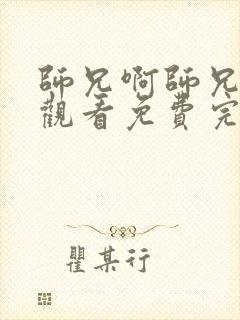 師兄啊師兄
觀看免費完
瞿某行